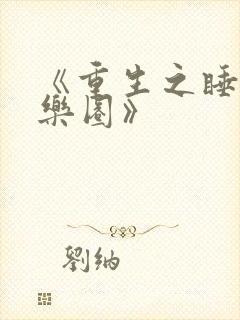 《重生之睡
樂園》
劉納